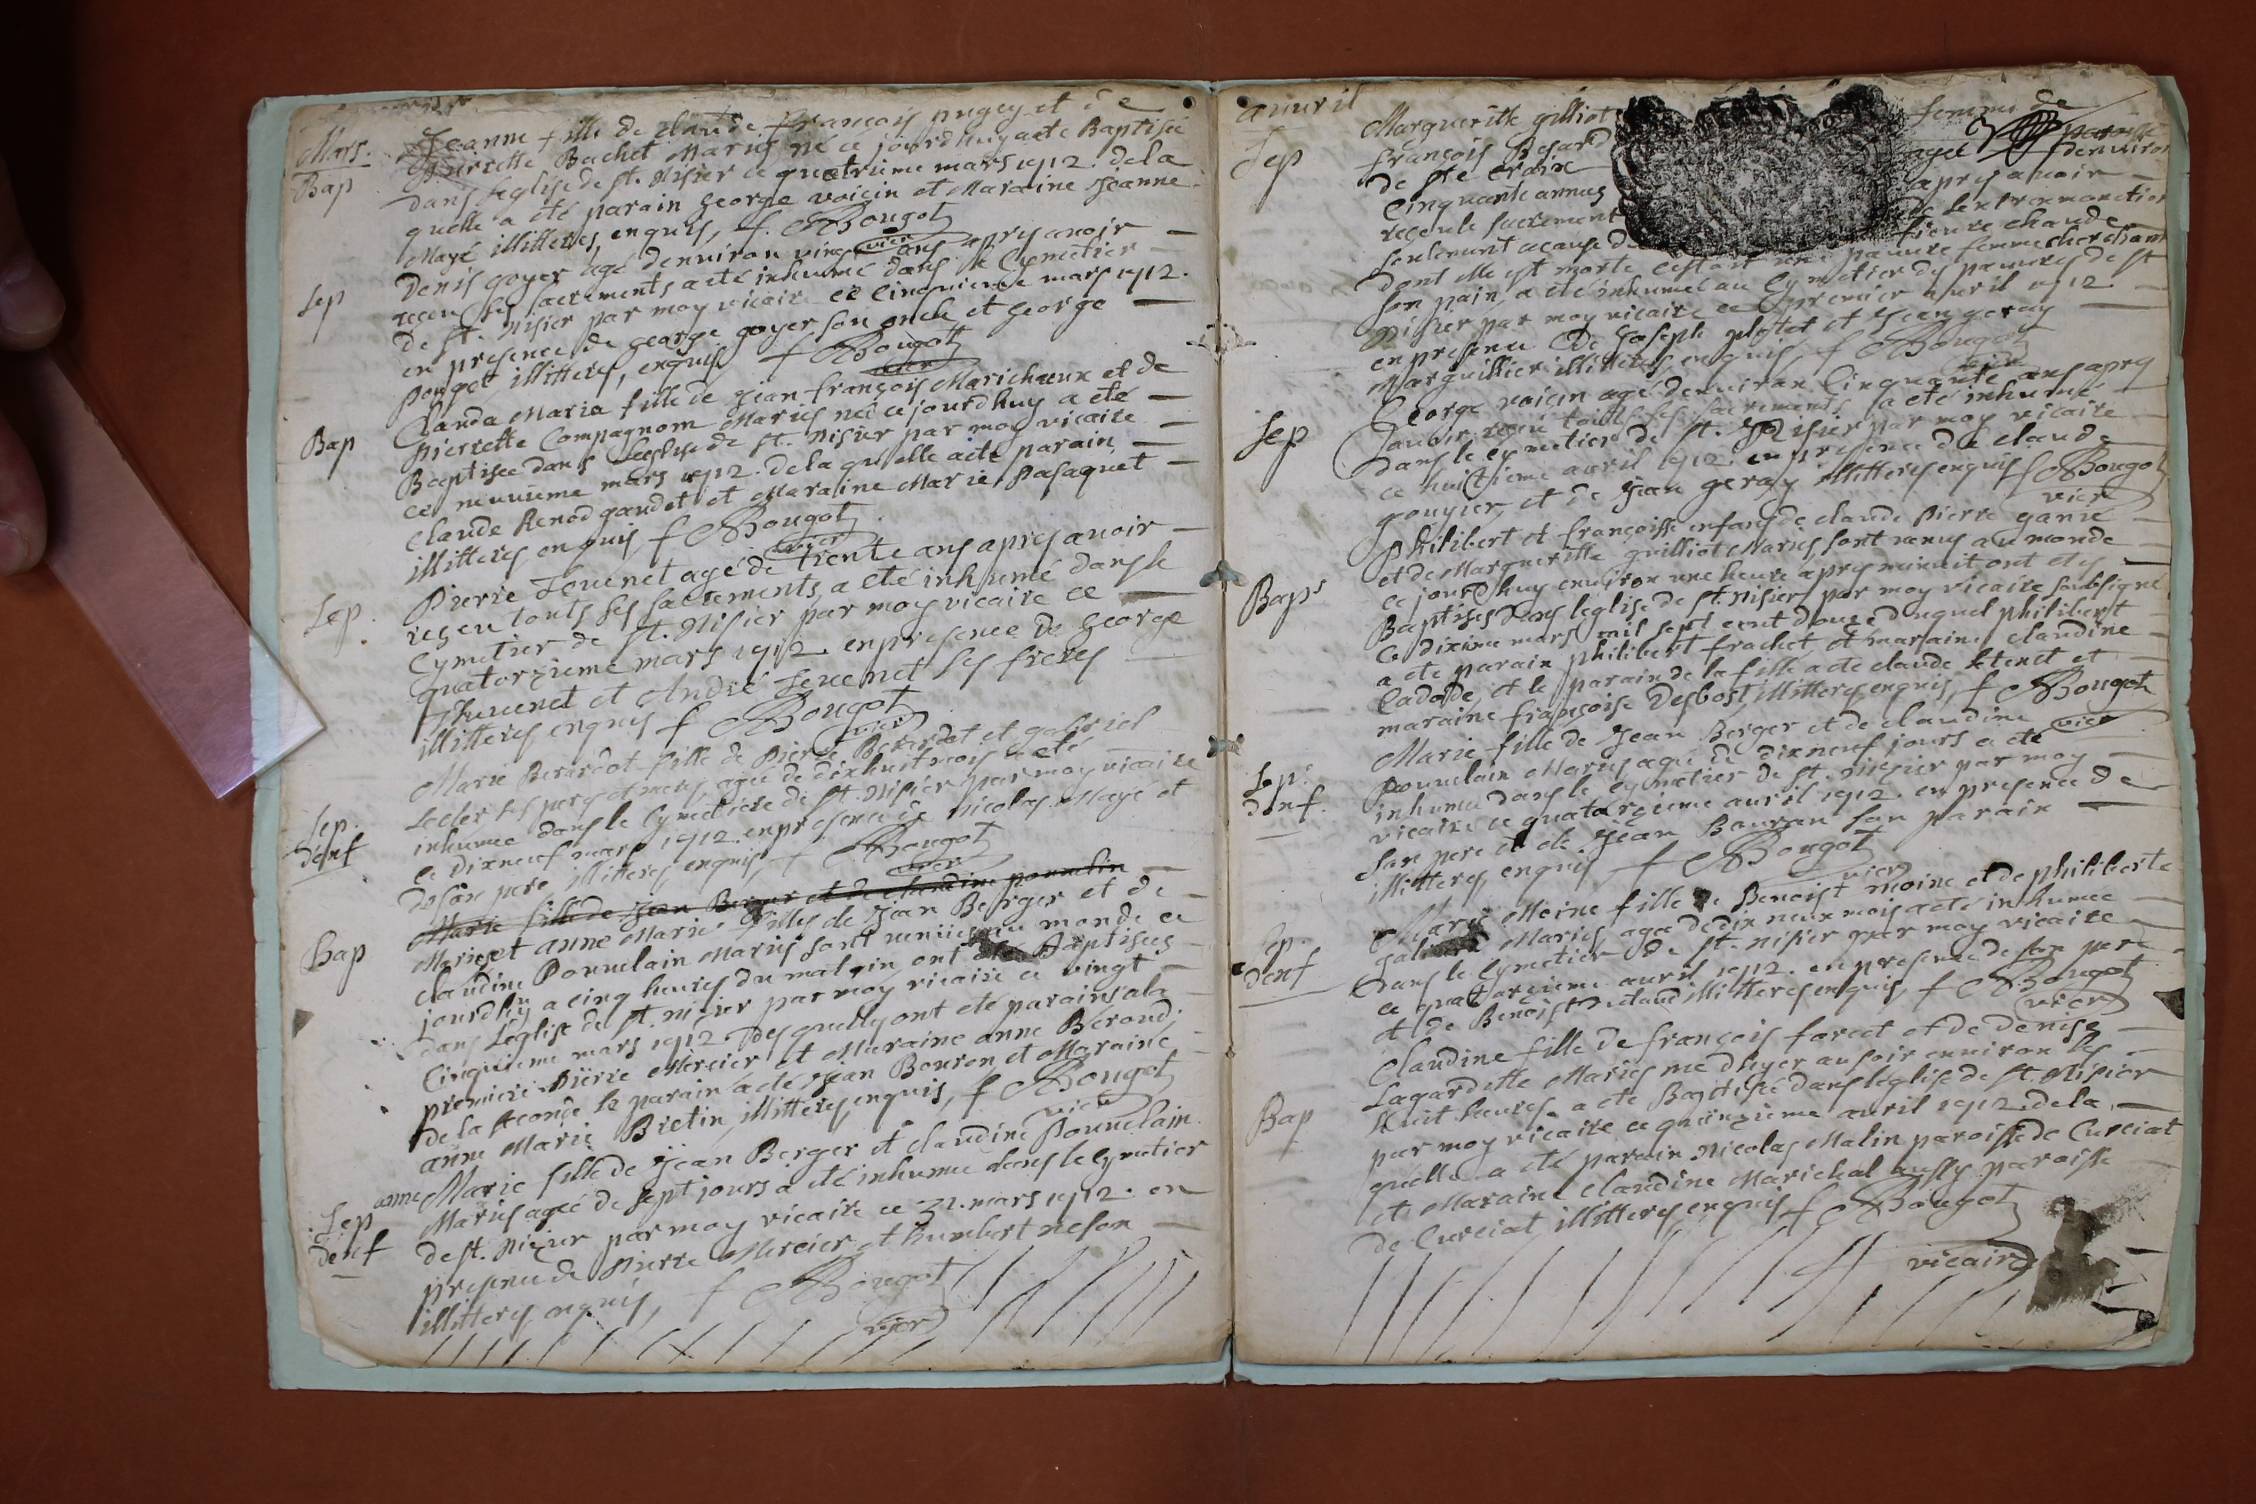 Mars.
Bap
Jeanne fille de claude françois pugey et de
pierrette Bachet Mariés né ce jourdhuy a ete Baptisée
dans leglise de st. nisier ce quatrieme mars 1712. de la
quelle a été parain george voisin et Maraine jeanne
Mayé illitteres enquis, f. Bougot
vier
Sep
Denis goyer agé denviron vingt ans apres avoir
reçeu ses sacrements a eté inhumé dans le cymetier
de st. nisier par moy vicaire ce cinquieme mars 1712.
en presence de george goyer son oncle et george
pouget illitteres, enquis f Bougot
vier
Bap
Clauda Maria fille de jean françois Marichaux et de
pierrette Compagnom Mariés née ce jourdhuy a eté
Baptisee dans leglise de st. nisier par moy vicaire
ce neuvieme mars 1712. de la quelle a eté parain
claude Renod gaudet et Maraine Marie Pasaquet
illitteres enquis f Bougot
vier
Sep.
Pierre Jouuenet agé de trente ans apres avoir
reçeu touts ses sacrements, a eté inhumé dans le
Cymetier de st. nisier par moy vicaire ce
quatorzieme mars 1712. en presence de george
et André ses freres
illitteres enquis f Bougot
vier
Sep.
denf
Marie Berardot fille de Pierre Berardot et gabriel
Lecler ses pere et mere, agée de dixhuit mois a eté
inhumee dans le Cymetiere de st. nisier par moy vicaire
ce dixneuf mars 1712. en presence de nicolas Mayé et
de son pere illitteres, enquis, f Bougot
vier
Marie fille de jean Berger et de claudine pouuelin
Bap
Marie et anne Marie filles de jean Berger et de
claudine Pouuelain Mariés sont venües au monde ce
jourdhuy a cinq heures du matin ont eté Baptisées
dans Leglise de st. nisier par moy vicaire ce vingt
cinquieme mars 1712. desquelles ont eté parains a la
premiere Pierre Mercier et Maraine anne Beraud.
de la seconde le parain a eté jean Bouron et Maraine
anne Marie Bretin illitteres, enquis, f Bougot
vier
Sep
denf
anne Marie fille de jean Berger et claudine Pouuelain
Mariés ageé de sept jours a eté inhumee dans le Cymetier
de st. nizier par moy vicaire ce 31. mars 1712. en
presence de Pierre Mercier et humbert neson
illitteres enquis, f Bougot
vier
auuril
Sep
Marguerite gilliot femme de
françois Besard paroisse
de ste croix agée denviron
Cinquante années apres avoir
reçeu le sacrement de lextremonction
seulement acause fieure chaude
dont elle est morte cestoit une pauure femme cherchant
son pain, a eté inhumée au Cymetier des pauures de st
nisier par moy vicaire ce premier auril 1712.
en presence de Joseph plotet et jean geray
Marguillier illitteres, enquis, f Bougot
vier
Sep
George voisin agé denviron Cinquante ans apres
avoir reçeu touts ses sacrements, a eté inhumé
dans le cymetier de st. nisier par moy vicaire
ce huitieme auril 1712. en presence de claude
gouyer, et de jean geray illitteres enquis f Bougot
vier
Baps
philibert et françoise enfans de claude Pierre
et de Marguerite guilliot Mariés sont venus au monde
ce jourdhuy environ une heure apres minuit ont etes
Baptises dans leglise de st. nisier par moy vicaire soubsigné
ce dixieme mars mil sept cent douze duquel philibert
a eté parain philibert frachet, et maraine claudine
Cadode, et le parain de la fille a eté claude et
maraine françoise Desbost illitteres enquis, f Bougot
vier
Sep.
denf.
Marie fille de jean Berger et de claudine
Pouuelain Mariés agée de dixneuf jours a eté
inhumée dans le cymetier de st. nisier par moy
vicaire ce quatorzieme auril 1712. en presence de
son pere et de jean Bouron son parain
illitteres, enquis f Bougot
vier
Sep.
denf
Marie Moine fille de Benoist moine et de philiberte
Mariés agée de dix neuf mois a eté inhumee
dans le Cymetier de st. nisier par moy vicaire
ce quatorzieme auril 1712. en presence de son pere
et de Benoist illitteres enquis, f Bougot
vier
Bap
Claudine fille de françois foret et de denise
Lagardette Mariés née dhyer au soir environ les
huit heures a eté Baptisée dans leglise de st. nisier
par moy vicaire ce quinzieme auril 1712. de la
quelle a eté parain nicolas Malin paroisse de Curciat
et Maraine claudine Marichal aussy paroisse
de Curciat illitteres enquis f Bougot
vicaire